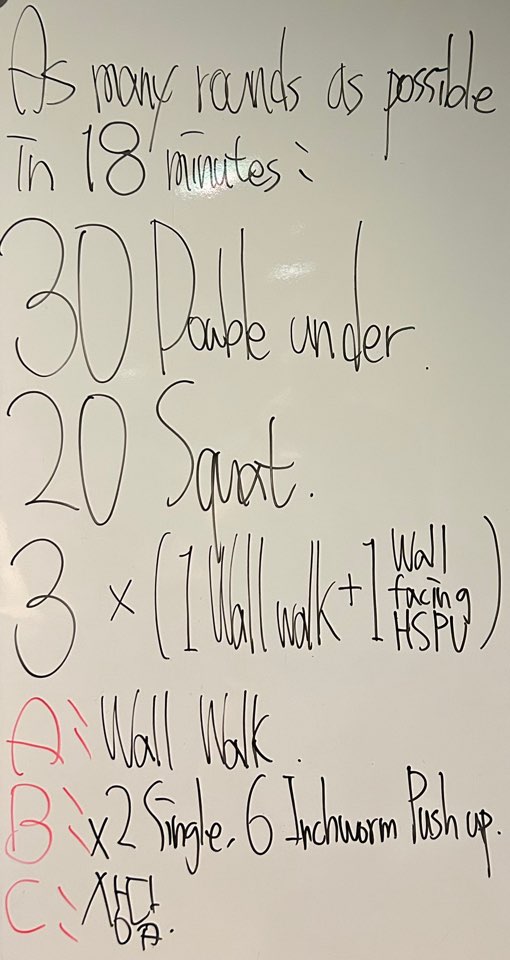 As many rounds as possible
in 18 minutes:
30 Double under.
20 Squat.
3 x (1 Wall walk + 1 Wall facing HSPU)
A: Wall Walk.
B: x2 Single, 6 Inchworm Push up.
C: 상담.